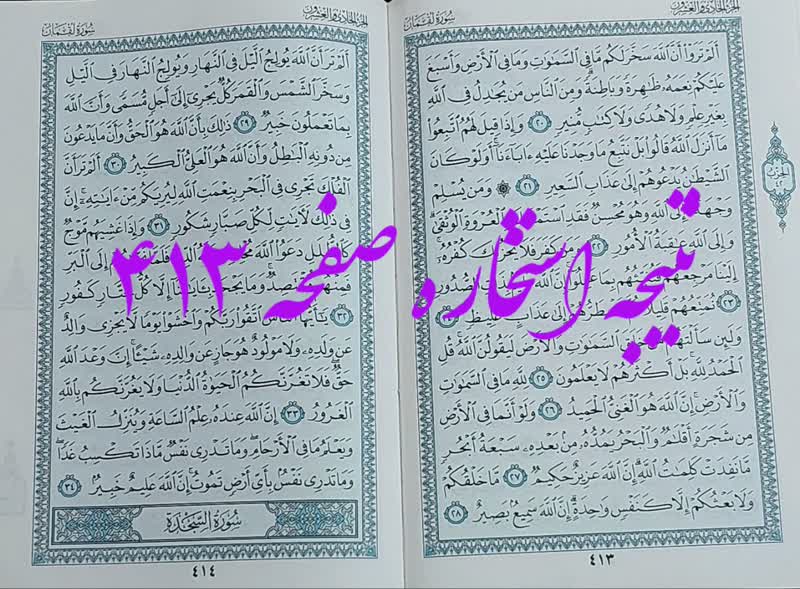 الجزء الحادي والعشرون سورة لقمان
أَلَمْ تَرَوْا أَنَّ اللَّهَ سَخَّرَ لَكُم مَّا فِي السَّمَوَٰتِ وَمَا فِي الْأَرْضِ وَأَسْبَغَ
عَلَيْكُمْ نِعَمَهُ ظَٰهِرَةً وَبَاطِنَةً وَمِنَ النَّاسِ مَن يُجَٰدِلُ فِي اللَّهِ
بِغَيْرِ عِلْمٍ وَلَا هُدًى وَلَا كِتَٰبٍ مُّنِيرٍ ٢٠ وَإِذَا قِيلَ لَهُمُ اتَّبِعُوا
مَا أَنزَلَ اللَّهُ قَالُوا بَلْ نَتَّبِعُ مَا وَجَدْنَا عَلَيْهِ ءَابَاءَنَا أَوَلَوْ كَانَ
الشَّيْطَٰنُ يَدْعُوهُمْ إِلَىٰ عَذَابِ السَّعِيرِ ٢١ ۞ وَمَن يُسْلِمْ
وَجْهَهُ إِلَى اللَّهِ وَهُوَ مُحْسِنٌ فَقَدِ اسْتَمْسَكَ بِالْعُرْوَةِ الْوُثْقَىٰ
وَإِلَى اللَّهِ عَٰقِبَةُ الْأُمُورِ ٢٢ وَمَن كَفَرَ فَلَا يَحْزُنكَ كُفْرُهُ
إِلَيْنَا مَرْجِعُهُمْ فَنُنَبِّئُهُم بِمَا عَمِلُوا إِنَّ اللَّهَ عَلِيمٌ بِذَاتِ الصُّدُورِ
٢٣ نُمَتِّعُهُمْ قَلِيلًا ثُمَّ نَضْطَرُّهُمْ إِلَىٰ عَذَابٍ غَلِيظٍ ٢٤
وَلَئِن سَأَلْتَهُم مَّنْ خَلَقَ السَّمَوَٰتِ وَالْأَرْضَ لَيَقُولُنَّ اللَّهُ قُلِ
الْحَمْدُ لِلَّهِ بَلْ أَكْثَرُهُمْ لَا يَعْلَمُونَ ٢٥ لِلَّهِ مَا فِي السَّمَوَٰتِ
وَالْأَرْضِ إِنَّ اللَّهَ هُوَ الْغَنِيُّ الْحَمِيدُ ٢٦ وَلَوْ أَنَّمَا فِي الْأَرْضِ
مِن شَجَرَةٍ أَقْلَٰمٌ وَالْبَحْرُ يَمُدُّهُ مِن بَعْدِهِ سَبْعَةُ أَبْحُرٍ
مَّا نَفِدَتْ كَلِمَٰتُ اللَّهِ إِنَّ اللَّهَ عَزِيزٌ حَكِيمٌ ٢٧ مَّا خَلْقُكُمْ
وَلَا بَعْثُكُمْ إِلَّا كَنَفْسٍ وَٰحِدَةٍ إِنَّ اللَّهَ سَمِيعٌ بَصِيرٌ ٢٨
٤١٣
الحزب ٤٢
الجزء الحادي والعشرون سورة لقمان
أَلَمْ تَرَ أَنَّ اللَّهَ يُولِجُ الَّيْلَ فِي النَّهَارِ وَيُولِجُ النَّهَارَ فِي الَّيْلِ
وَسَخَّرَ الشَّمْسَ وَالْقَمَرَ كُلٌّ يَجْرِي إِلَىٰ أَجَلٍ مُّسَمًّى وَأَنَّ اللَّهَ
بِمَا تَعْمَلُونَ خَبِيرٌ ٢٩ ذَٰلِكَ بِأَنَّ اللَّهَ هُوَ الْحَقُّ وَأَنَّ مَا يَدْعُونَ
مِن دُونِهِ الْبَٰطِلُ وَأَنَّ اللَّهَ هُوَ الْعَلِيُّ الْكَبِيرُ ٣٠ أَلَمْ تَرَ أَنَّ
الْفُلْكَ تَجْرِي فِي الْبَحْرِ بِنِعْمَتِ اللَّهِ لِيُرِيَكُم مِّنْ ءَايَٰتِهِ إِنَّ
فِي ذَٰلِكَ لَءَايَٰتٍ لِّكُلِّ صَبَّارٍ شَكُورٍ ٣١ وَإِذَا غَشِيَهُم مَّوْجٌ
كَالظُّلَلِ دَعَوُا اللَّهَ مُخْلِصِينَ لَهُ الدِّينَ فَلَمَّا نَجَّىٰهُمْ إِلَى الْبَرِّ
فَمِنْهُم مُّقْتَصِدٌ وَمَا يَجْحَدُ بِءَايَٰتِنَا إِلَّا كُلُّ خَتَّارٍ كَفُورٍ
٣٢ يَٰأَيُّهَا النَّاسُ اتَّقُوا رَبَّكُمْ وَاخْشَوْا يَوْمًا لَّا يَجْزِي وَالِدٌ
عَن وَلَدِهِ وَلَا مَوْلُودٌ هُوَ جَازٍ عَن وَالِدِهِ شَيْئًا إِنَّ وَعْدَ اللَّهِ
حَقٌّ فَلَا تَغُرَّنَّكُمُ الْحَيَوٰةُ الدُّنْيَا وَلَا يَغُرَّنَّكُم بِاللَّهِ
الْغَرُورُ ٣٣ إِنَّ اللَّهَ عِندَهُ عِلْمُ السَّاعَةِ وَيُنَزِّلُ الْغَيْثَ
وَيَعْلَمُ مَا فِي الْأَرْحَامِ وَمَا تَدْرِي نَفْسٌ مَّاذَا تَكْسِبُ غَدًا
وَمَا تَدْرِي نَفْسٌ بِأَيِّ أَرْضٍ تَمُوتُ إِنَّ اللَّهَ عَلِيمٌ خَبِيرٌ ٣٤
سُورَةُ السَّجْدَةِ
٤١٤
نتیجه استخاره صفحه ۴۱۳